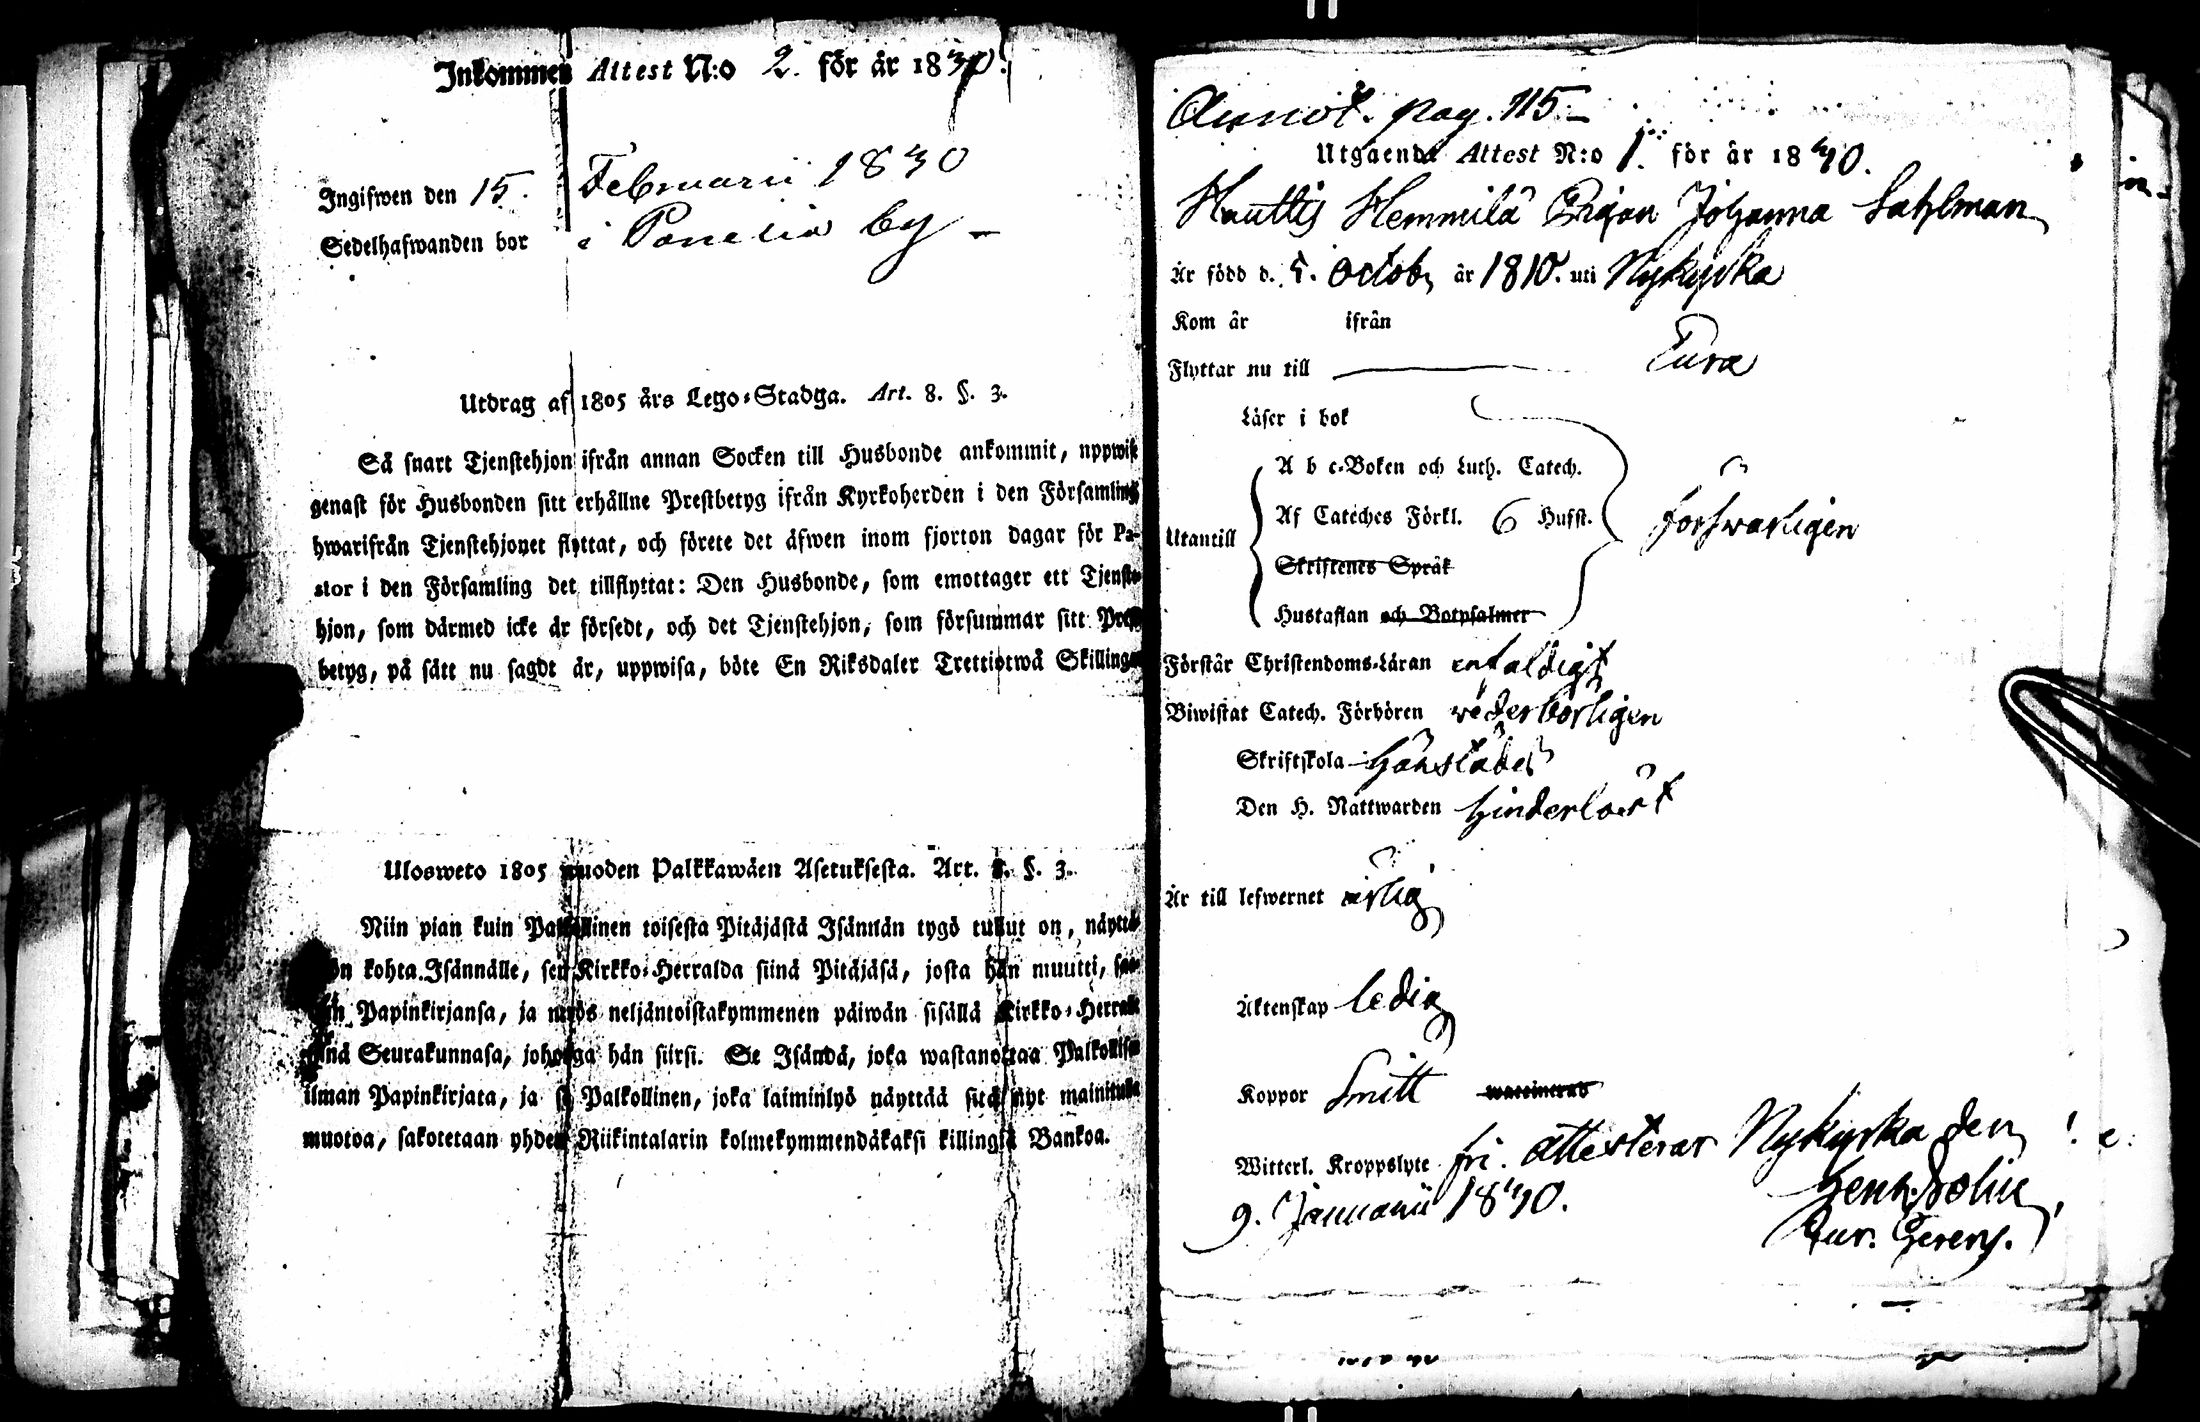 Inkommen Attest N:o 2. för år 1840.
Ingifwen den 15. Februarii 1840
Sedelhafwanden bor i Panelia by
Utdrag af 1805 års Lego-Stadga. Art. 8. §. 3.
Så snart Tjenstehjon ifrån annan Socken till Husbonde ankommit, uppwise
genast för Husbonden sitt erhållne Prestbetyg ifrån Kyrkoherden i den Församling
hwarifrån Tjenstehjonet flyttat, och förete det äfwen inom fjorton dagar för Pa-
stor i den Församling det tillflyttat: Den Husbonde, som emottager ett Tjenste-
hjon, som därmed icke är försedt, och det Tjenstehjon, som försummar sitt Prest-
betyg, på sätt nu sagdt är, uppwisa, böte En Riksdaler Trettiotwå Skillingar
Ulosweto 1805 wuoden Palkkawäen Asetuksesta. Art. 8. §. 3.
Niin pian kuin Palkollinen toisesta Pitäjästä Isännän tygö tullut on, näyttä-
kohta Isännälle, sen Kirkko-Herralda siinä Pitäjäsä, josta hän muutti,
Papinkirjansa, ja myös neljäntoistakymmenen päiwän sisällä Kirkko-Herralle
siinä Seurakunnasa, johonga hän siirsi. Se Isändä, joka wastanottaa Palkollisen
ilman Papinkirjata, ja se Palkollinen, joka laiminlyö näyttää sitä nyt mainitulla
muotoa, sakotetaan yhden Riikintalarin kolmekymmendäkaksi killingiä Bankoa.
Annot. pag. 115
Utgående Attest N:o 1. för år 1840.
Hemmilä Pigan Johanna Sahlman
Är född d. 5. Octob. år 1810. uti Nykyrka
Kom år ifrån
Flyttar nu till Eura
Läser i bok
A b c-Boken och Luth. Catech.
Utantill Af Cateches Förkl. 6 Hufst. försvarligen
Skriftenes Språk
Hustaflan och Botpsalmer
Förstår Christendoms-Läran enfaldigt
Biwistat Catech. Förhören wederbörligen
Skriftskola
Den H. Nattwarden hinderlöst
Är till lefwernet ärlig
Äktenskap ledig
Koppor Smitt waccinerad
Witterl. Kroppslyte fri. attesterar Nykyrka den
9. Januarii 1840.